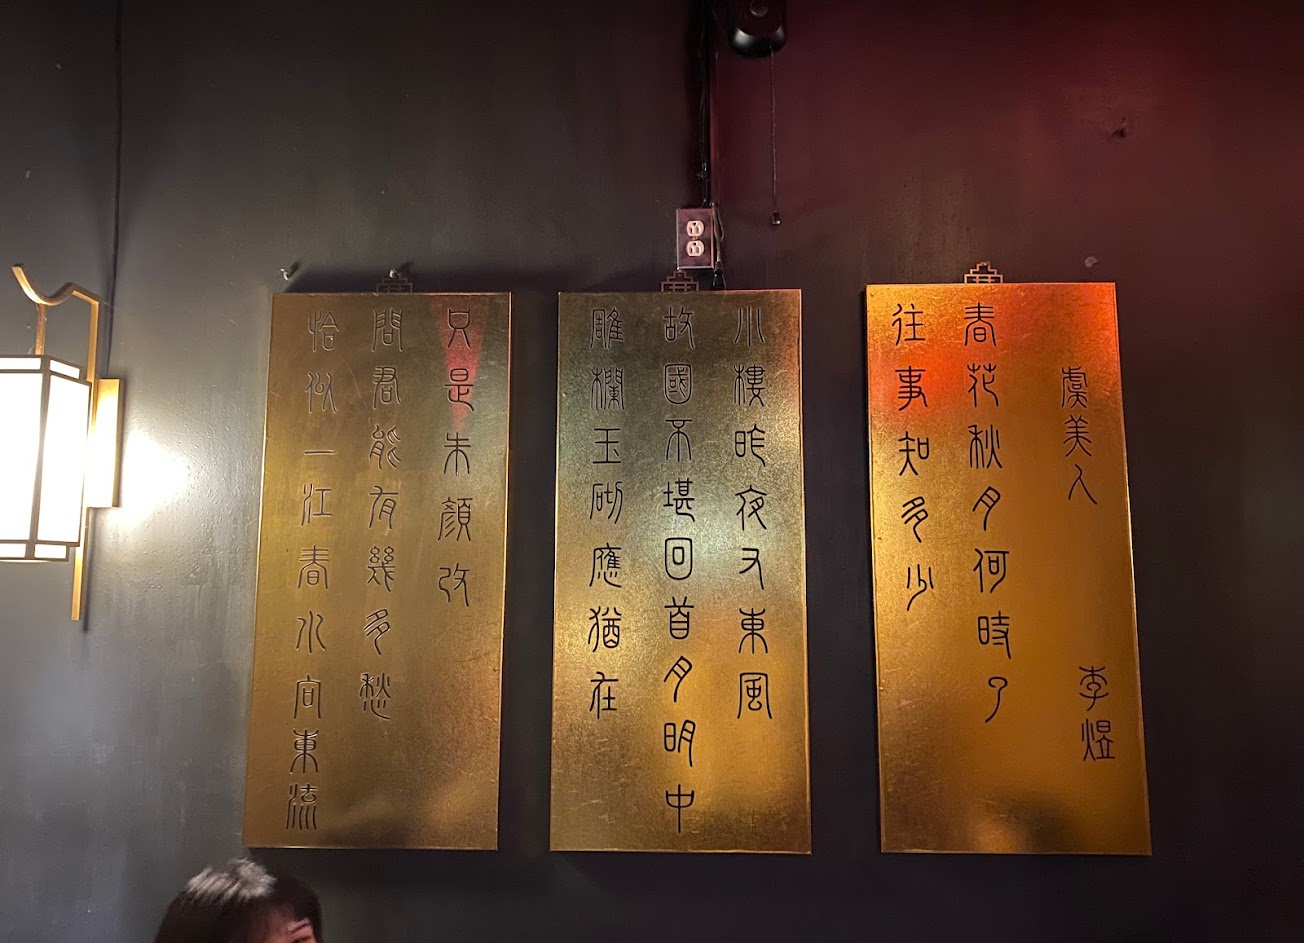 虞美人
李煜
春花秋月何時了
往事知多少
小樓昨夜又東風
故國不堪回首月明中
雕欄玉砌應猶在
只是朱顏改
問君能有幾多愁
恰似一江春水向東流